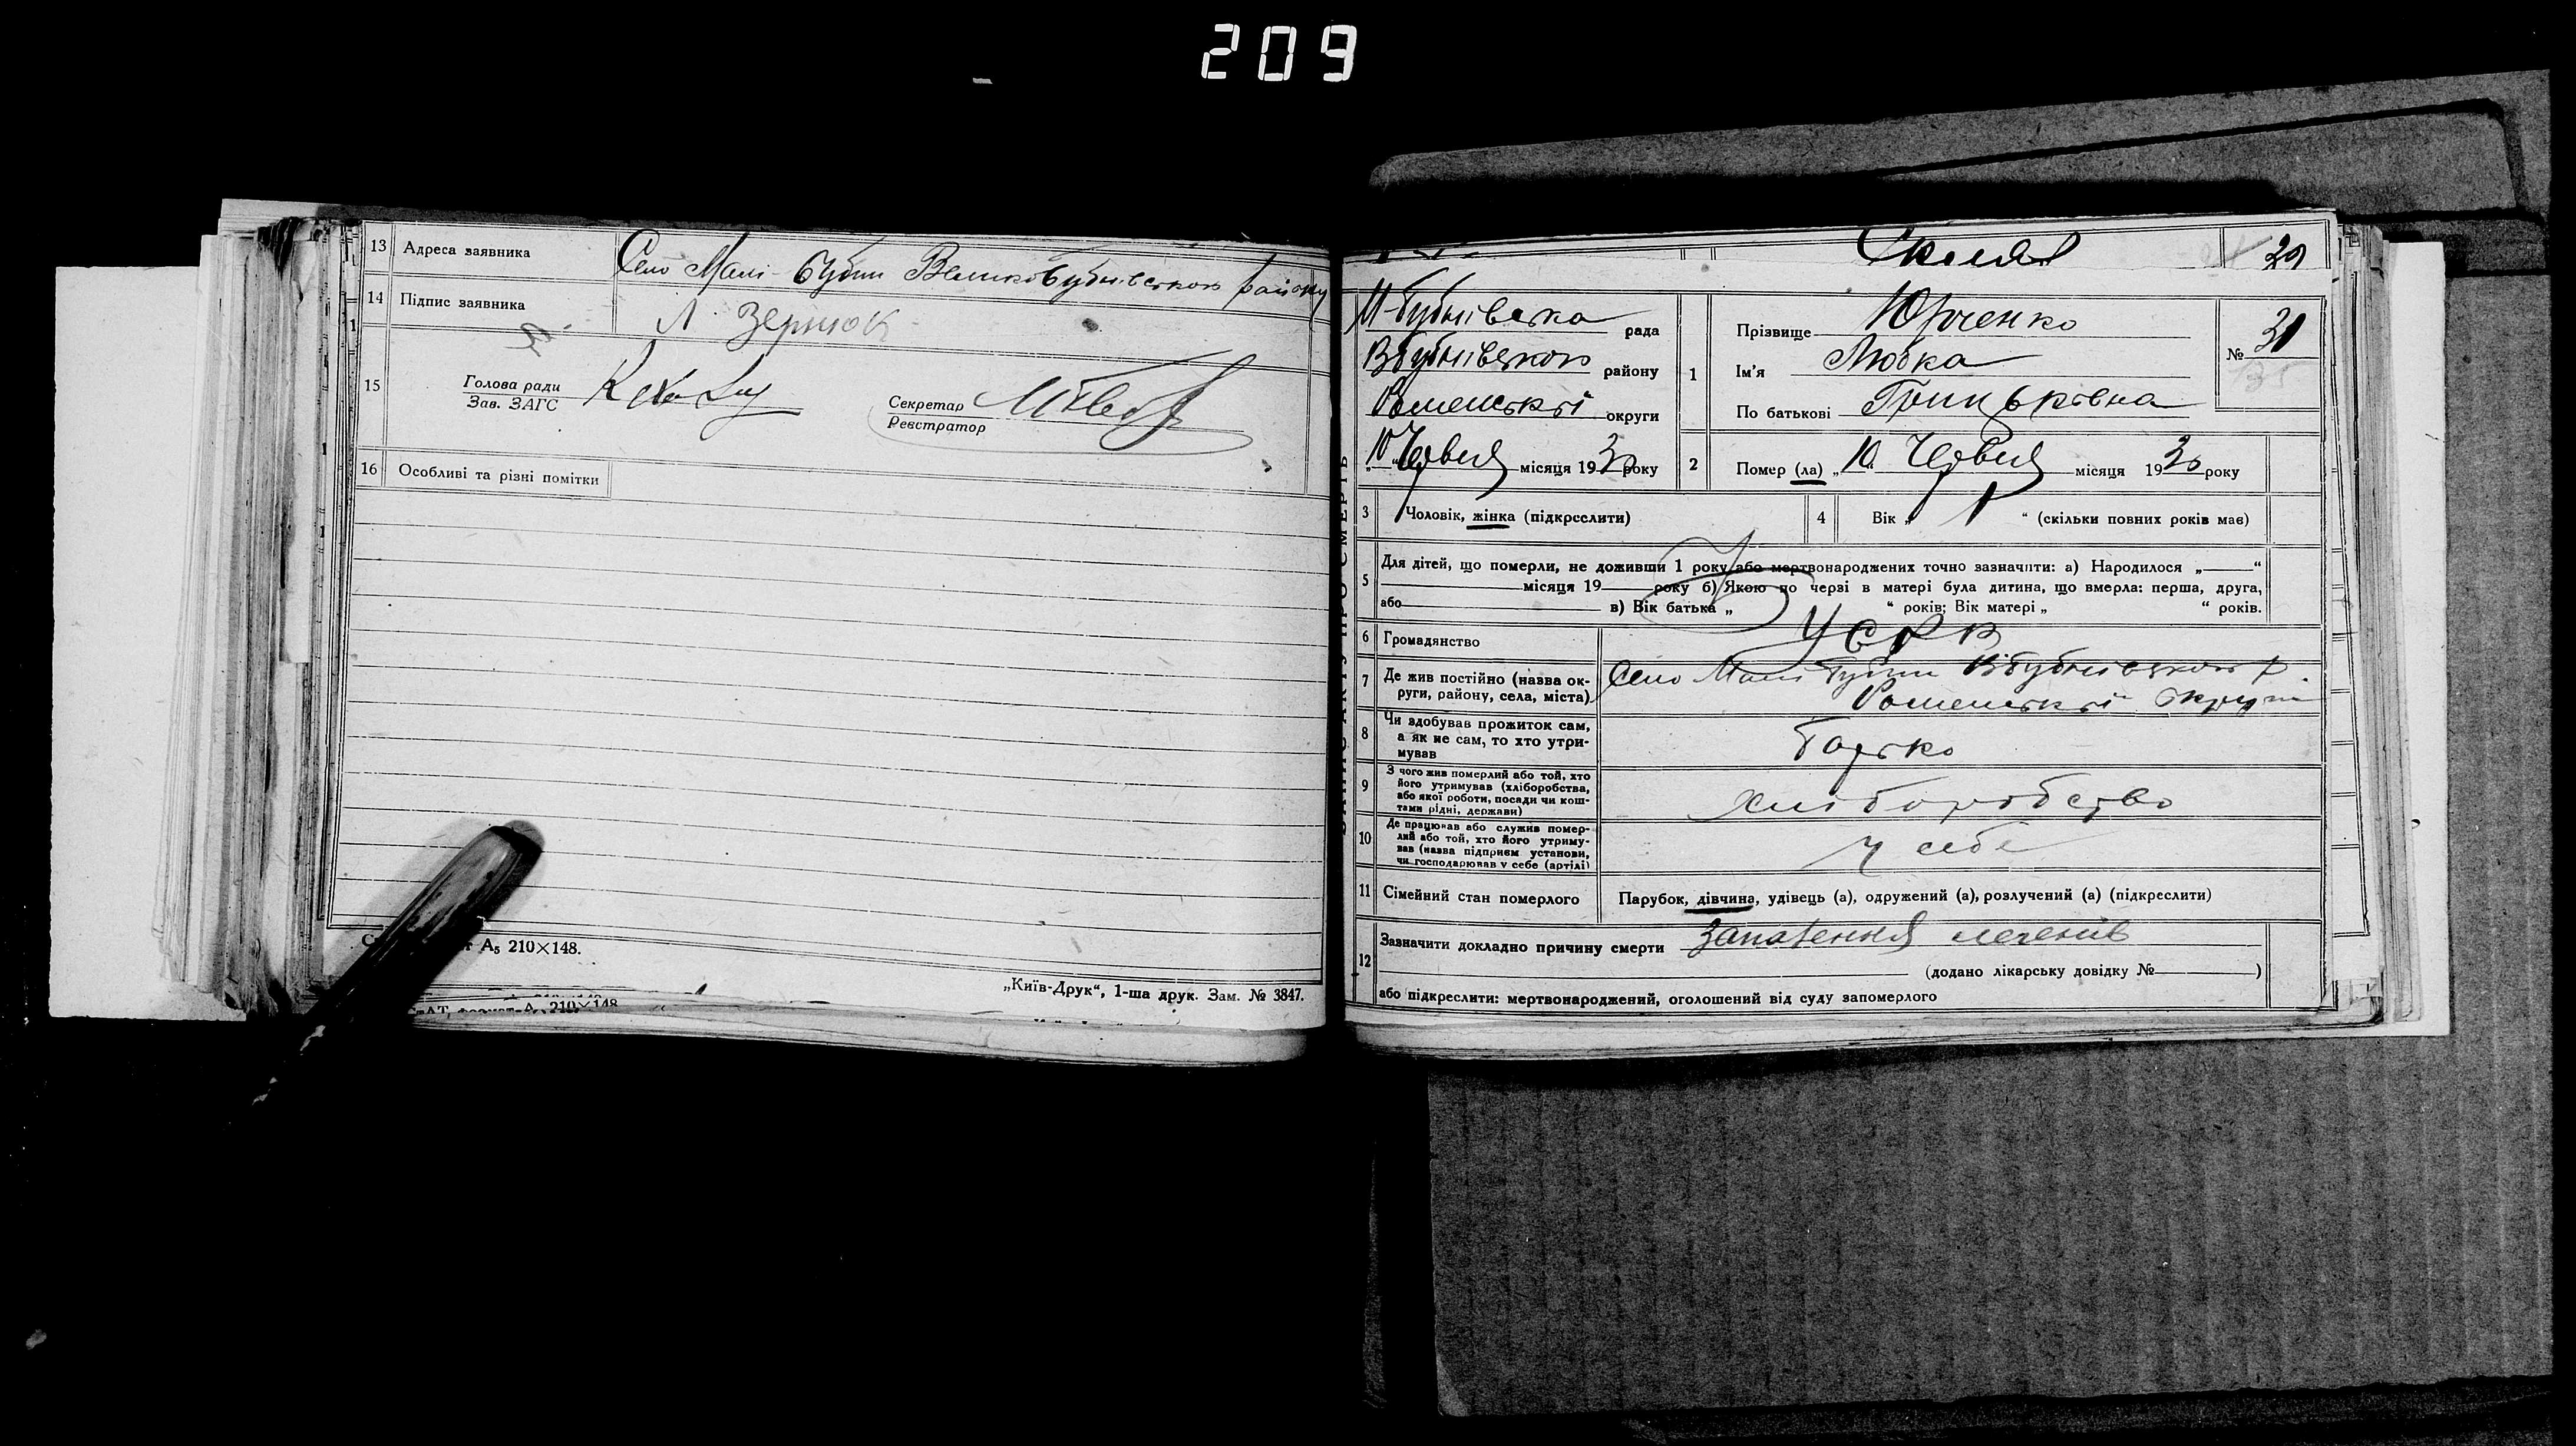 209
13 Адреса заявника Село Малі-Бубни Великобубнівського району
14 Підпис заявника Л Зернюк
15 Голова ради
Зав. ЗАГС
Секретар
Реєстратор
16 Особливі та різні помітки
А₅ 210×148.
„Київ-Друк“, 1-ша друк. Зам. № 3847.
210×148
29
М-Бубнівська рада
ВБубнівського району
Роменської округи
„10“ Червня місяця 1930 року
1 Прізвище Юрченко
Ім'я Любка
По батькові Грицьківна
№ 31
2 Помер (ла) „10“ Червня місяця 1930 року
3 Чоловік, жінка (підкреслити)
4 Вік „1“ (скільки повних років має)
5 Для дітей, що померли, не доживши 1 року або мертвонароджених точно зазначити: а) Народилося „ “
місяця 19 року б) Якою по черзі в матері була дитина, що вмерла: перша, друга,
або в) Вік батька „ “ років; Вік матері „ “ років.
6 Громадянство УСРР
7 Де жив постійно (назва округи, району, села, міста) Село Малі Бубни ВБубнівського р.
Роменської округи
8 Чи здобував прожиток сам,
а як не сам, то хто утри-
мував Батько
9 З чого жив померлий або той, хто
його утримував (хліборобства,
або якої роботи, посади чи кош-
тами рідні, держави) Хліборобство
10 Де працював або служив помер-
лий або той, хто його утриму-
вав (назва підприєм установи,
чи господарював у себе (артілі) У себе
11 Сімейний стан померлого Парубок, дівчина, удівець (а), одружений (а), розлучений (а) (підкреслити)
12 Зазначити докладно причину смерти Запалення легенів
(додано лікарську довідку № )
або підкреслити: мертвонароджений, оголошений від суду запомерлого